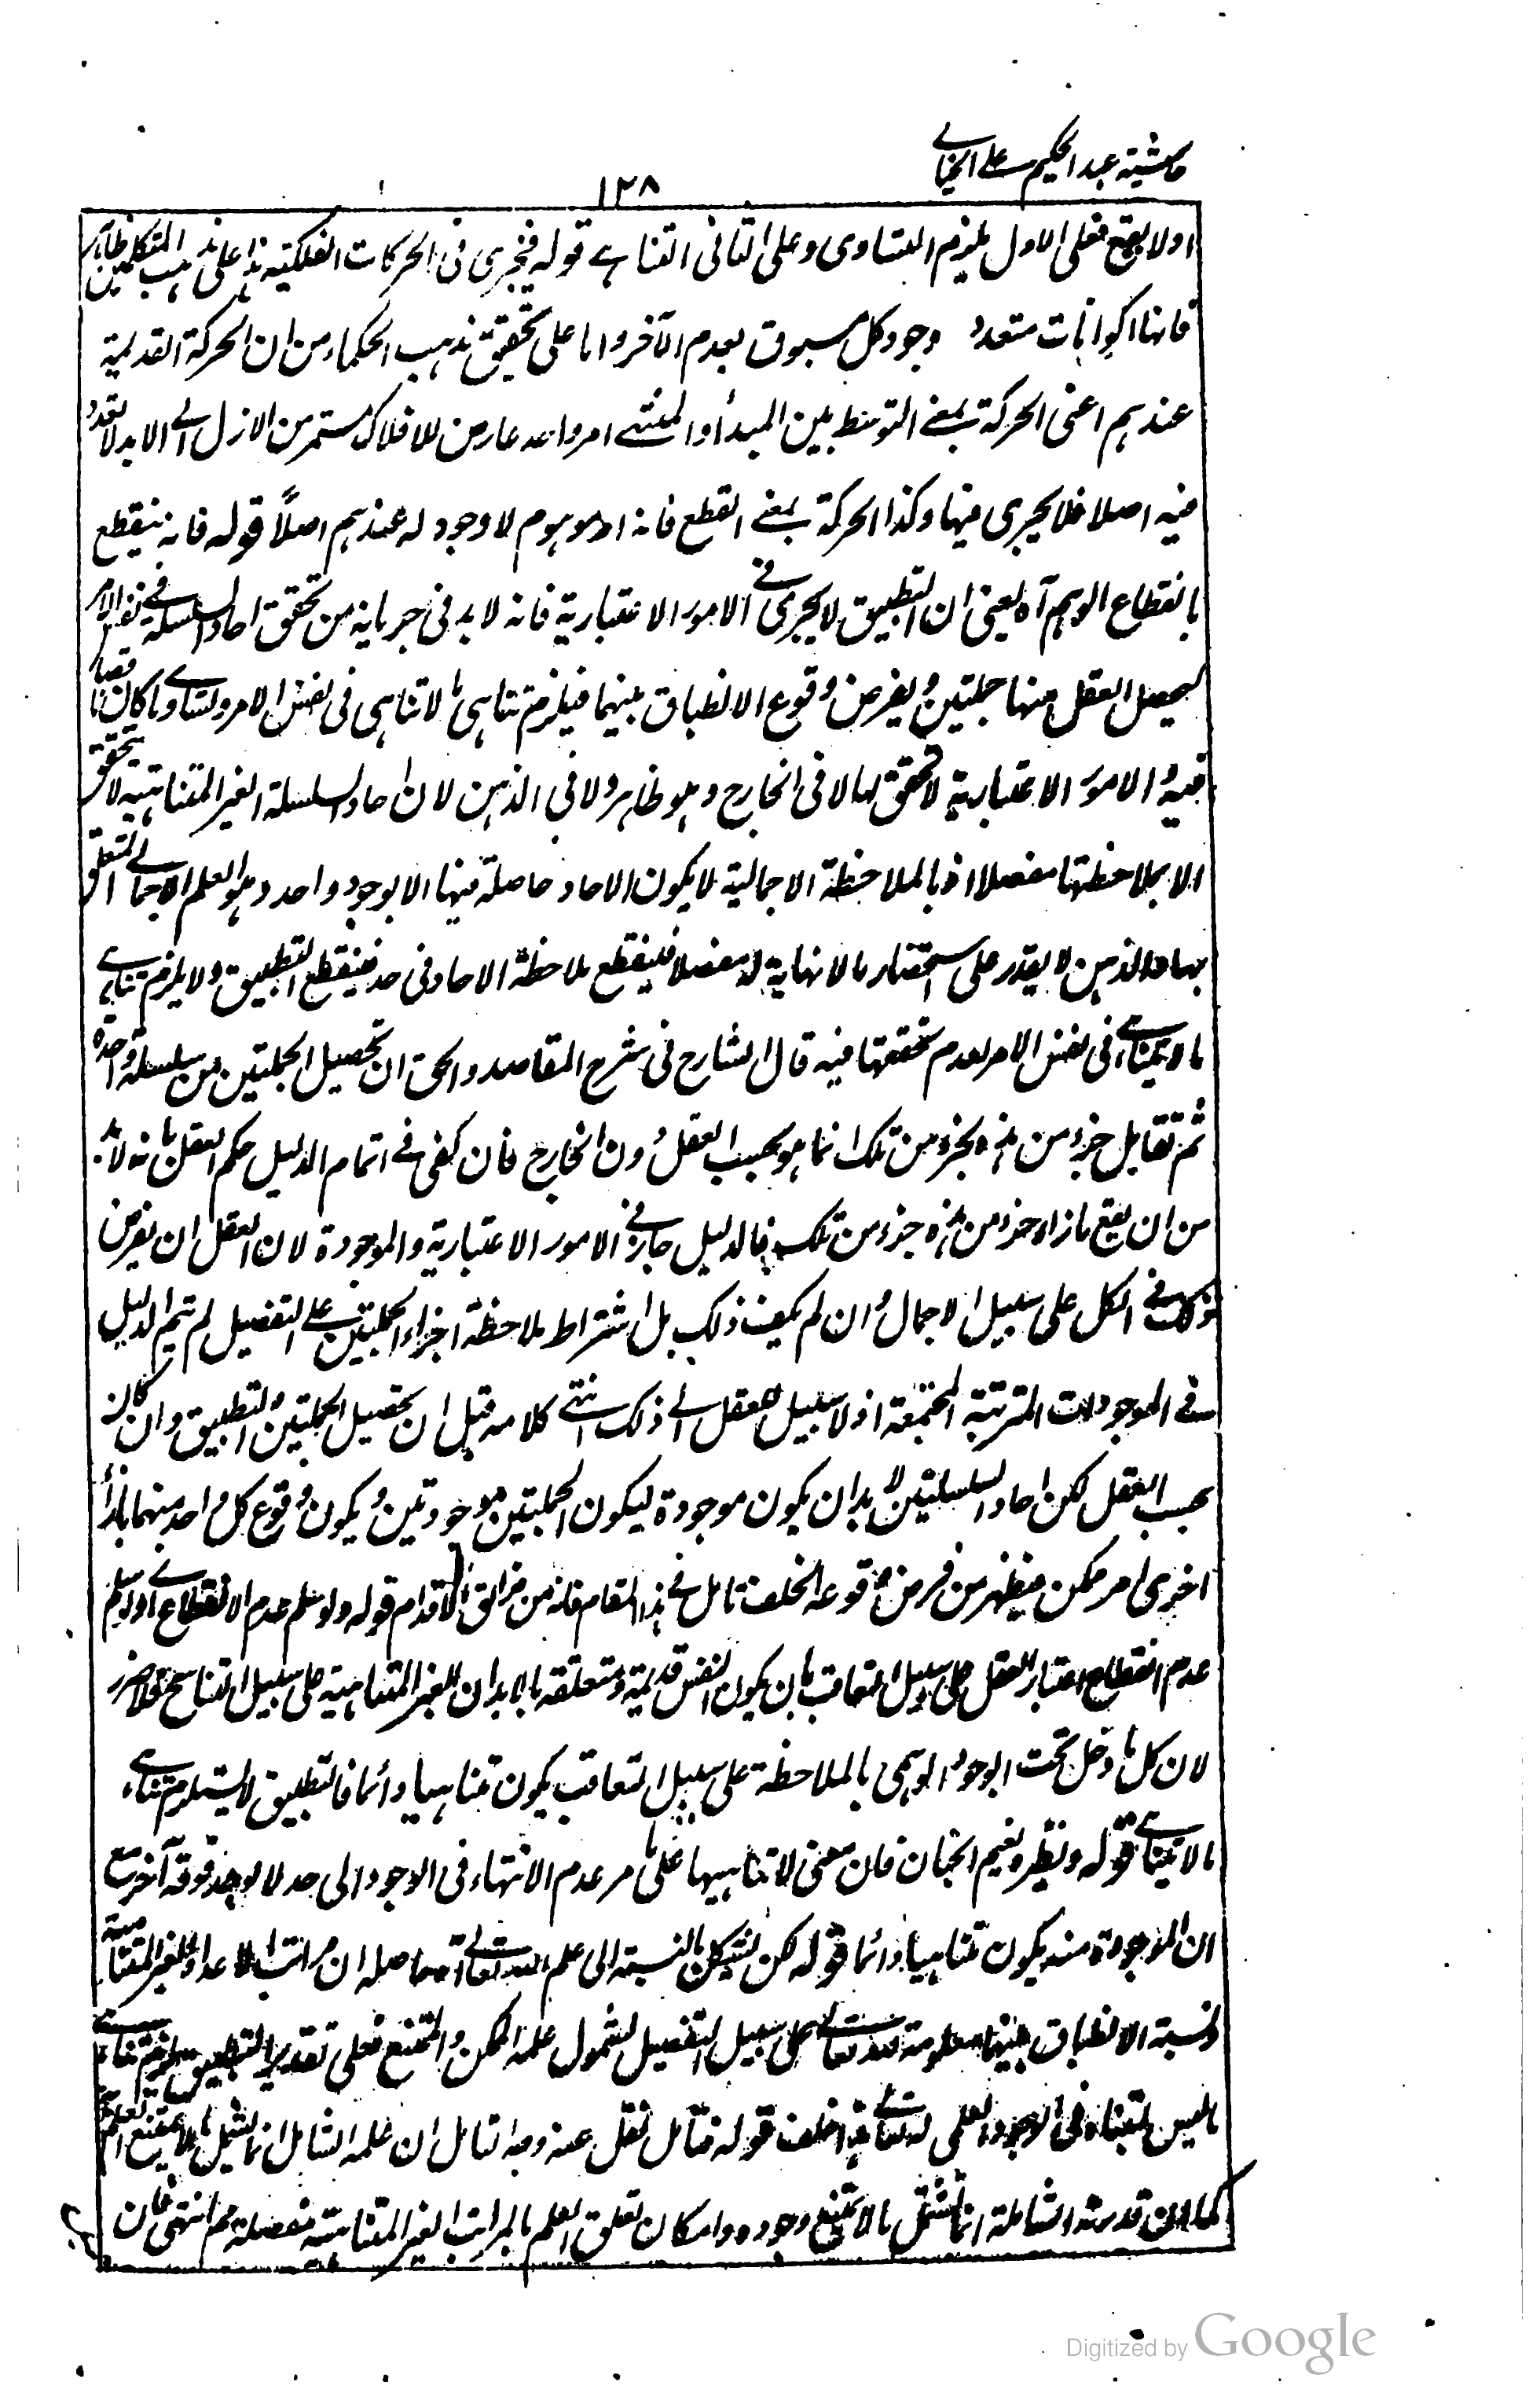 حاشية عبد الحكيم على الخيالي
١٢٨
او لا يقع فعلى الاول يلزم التساوى وعلى الثانى التناهى قوله فيجرى فى الحركات الفلكية هذا على مذهب المتكلمين ظاهر
فانها اكوانات متعددة وجود كل مسبوق بعدم الآخر واما على تحقيق مذهب الحكماء من ان الحركة القديمة
عندهم اعنى الحركة بمعنى التوسط بين المبدأ والمنتهى امر واحد عارض للافلاك مستمر من الازل الى الابد لا تعدد
فيه اصلا فلا يجرى فيها وكذا الحركة بمعنى القطع فانه امر موهوم لا وجود له عندهم اصلاً قوله فانه ينقطع
بانقطاع الوهم آه يعنى ان التطبيق لا يجرى فى الامور الاعتبارية فانه لا بد فى جريانه من تحقق احاد السلسلة فى نفس الامر
ليحصل العقل منها جملتين ويفرض وقوع الانطباق بينهما فيلزم تناهى ما لا تناهى فى نفس الامر وتساوى ما كان ناقصا
فيه والامور الاعتبارية لا تحقق لها لا فى الخارج وهو ظاهر ولا فى الذهن لان احاد السلسلة الغير المتناهية لا تتحقق
الا بملاحظتها مفصلا اذ بالملاحظة الاجمالية لا يكون الاحاد حاصلة فيها الا بوجود واحد وهو العلم الاجمالى المتعلق
بها والذهن لا يقدر على استحضار ما لا نهاية له مفصلا فينقطع ملاحظة الاحاد فى حد فينقطع التطبيق ولا يلزم تناهى
ما لا يتناهى فى نفس الامر لعدم تحققها فيه قال الشارح فى شرح المقاصد والحق ان تحصيل الجملتين من سلسلة واحدة
ثم تقابل جزء من هذه بجزء من تلك انما هو بحسب العقل دون الخارج فان كفى فى اتمام الدليل حكم العقل بانه لا بد
من ان يقع بازاء جزء من هذه جزء من تلك فالدليل جار فى الامور الاعتبارية والموجودة لان للعقل ان يفرض
ذلك فى الكل على سبيل الاجمال وان لم يكف ذلك بل اشتراط ملاحظة اجزاء الجملتين على التفصيل لم يتم الدليل
فى الموجودات المترتبة المجتمعة اذ لا سبيل للعقل الى ذلك انتهى كلامه قيل ان تحصيل الجملتين والتطبيق وان كان
بحسب العقل لكن احاد السلسلتين لا بد ان يكون موجودة ليكون الجملتين موجودتين ويكون وقوع كل واحد منهما بازاء
اخرى امر ممكن فيظهر من فرض وقوعه الخلف تامل فى هذا المقام فانه من مزالق الاقدام قوله ولو سلم عدم الانقطاع اى ولو سلم
عدم انقطاع اعتبار العقل على سبيل التعاقب بان يكون النفس قديمة ومتعلقة بالابدان الغير المتناهية على سبيل التناسخ فلا ضرر
لان كل ما دخل تحت الوجود الوهمى بالملاحظة على سبيل التعاقب يكون متناهيا دائما فالتطبيق لا يستلزم تناهى
ما لا يتناهى قوله ونظيره نعيم الجنان فان معنى لا تناهيها على ما مر عدم الانتهاء فى الوجود الى حد لا يوجد فوقه آخر مع
ان الموجودة منه يكون متناهيا دائما قوله لكن يشكل بالنسبة الى علم الله تعالى آه حاصله ان مراتب الاعداد الغير المتناهية
ونسبة الانطباق بينها معلومة لله تعالى على سبيل التفصيل لشمول علمه الممكن والممتنع فعلى تقدير التطبيق يلزم تناهى
ما ليس بمتناه فى الوجود العلمى له تعالى هذا خلف قوله فتامل نقل عنه وجه التامل ان علمه الشامل انما يشمل ما لا يمتنع العلم به
كما ان قدرته الشاملة انما تشمل ما لا يمتنع وجوده وامكان تعلق العلم بالمراتب الغير المتناهية مفصلة مم انتهى فان
Digitized by Google